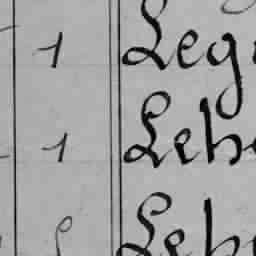 1 Leg
1 Leh
Leh